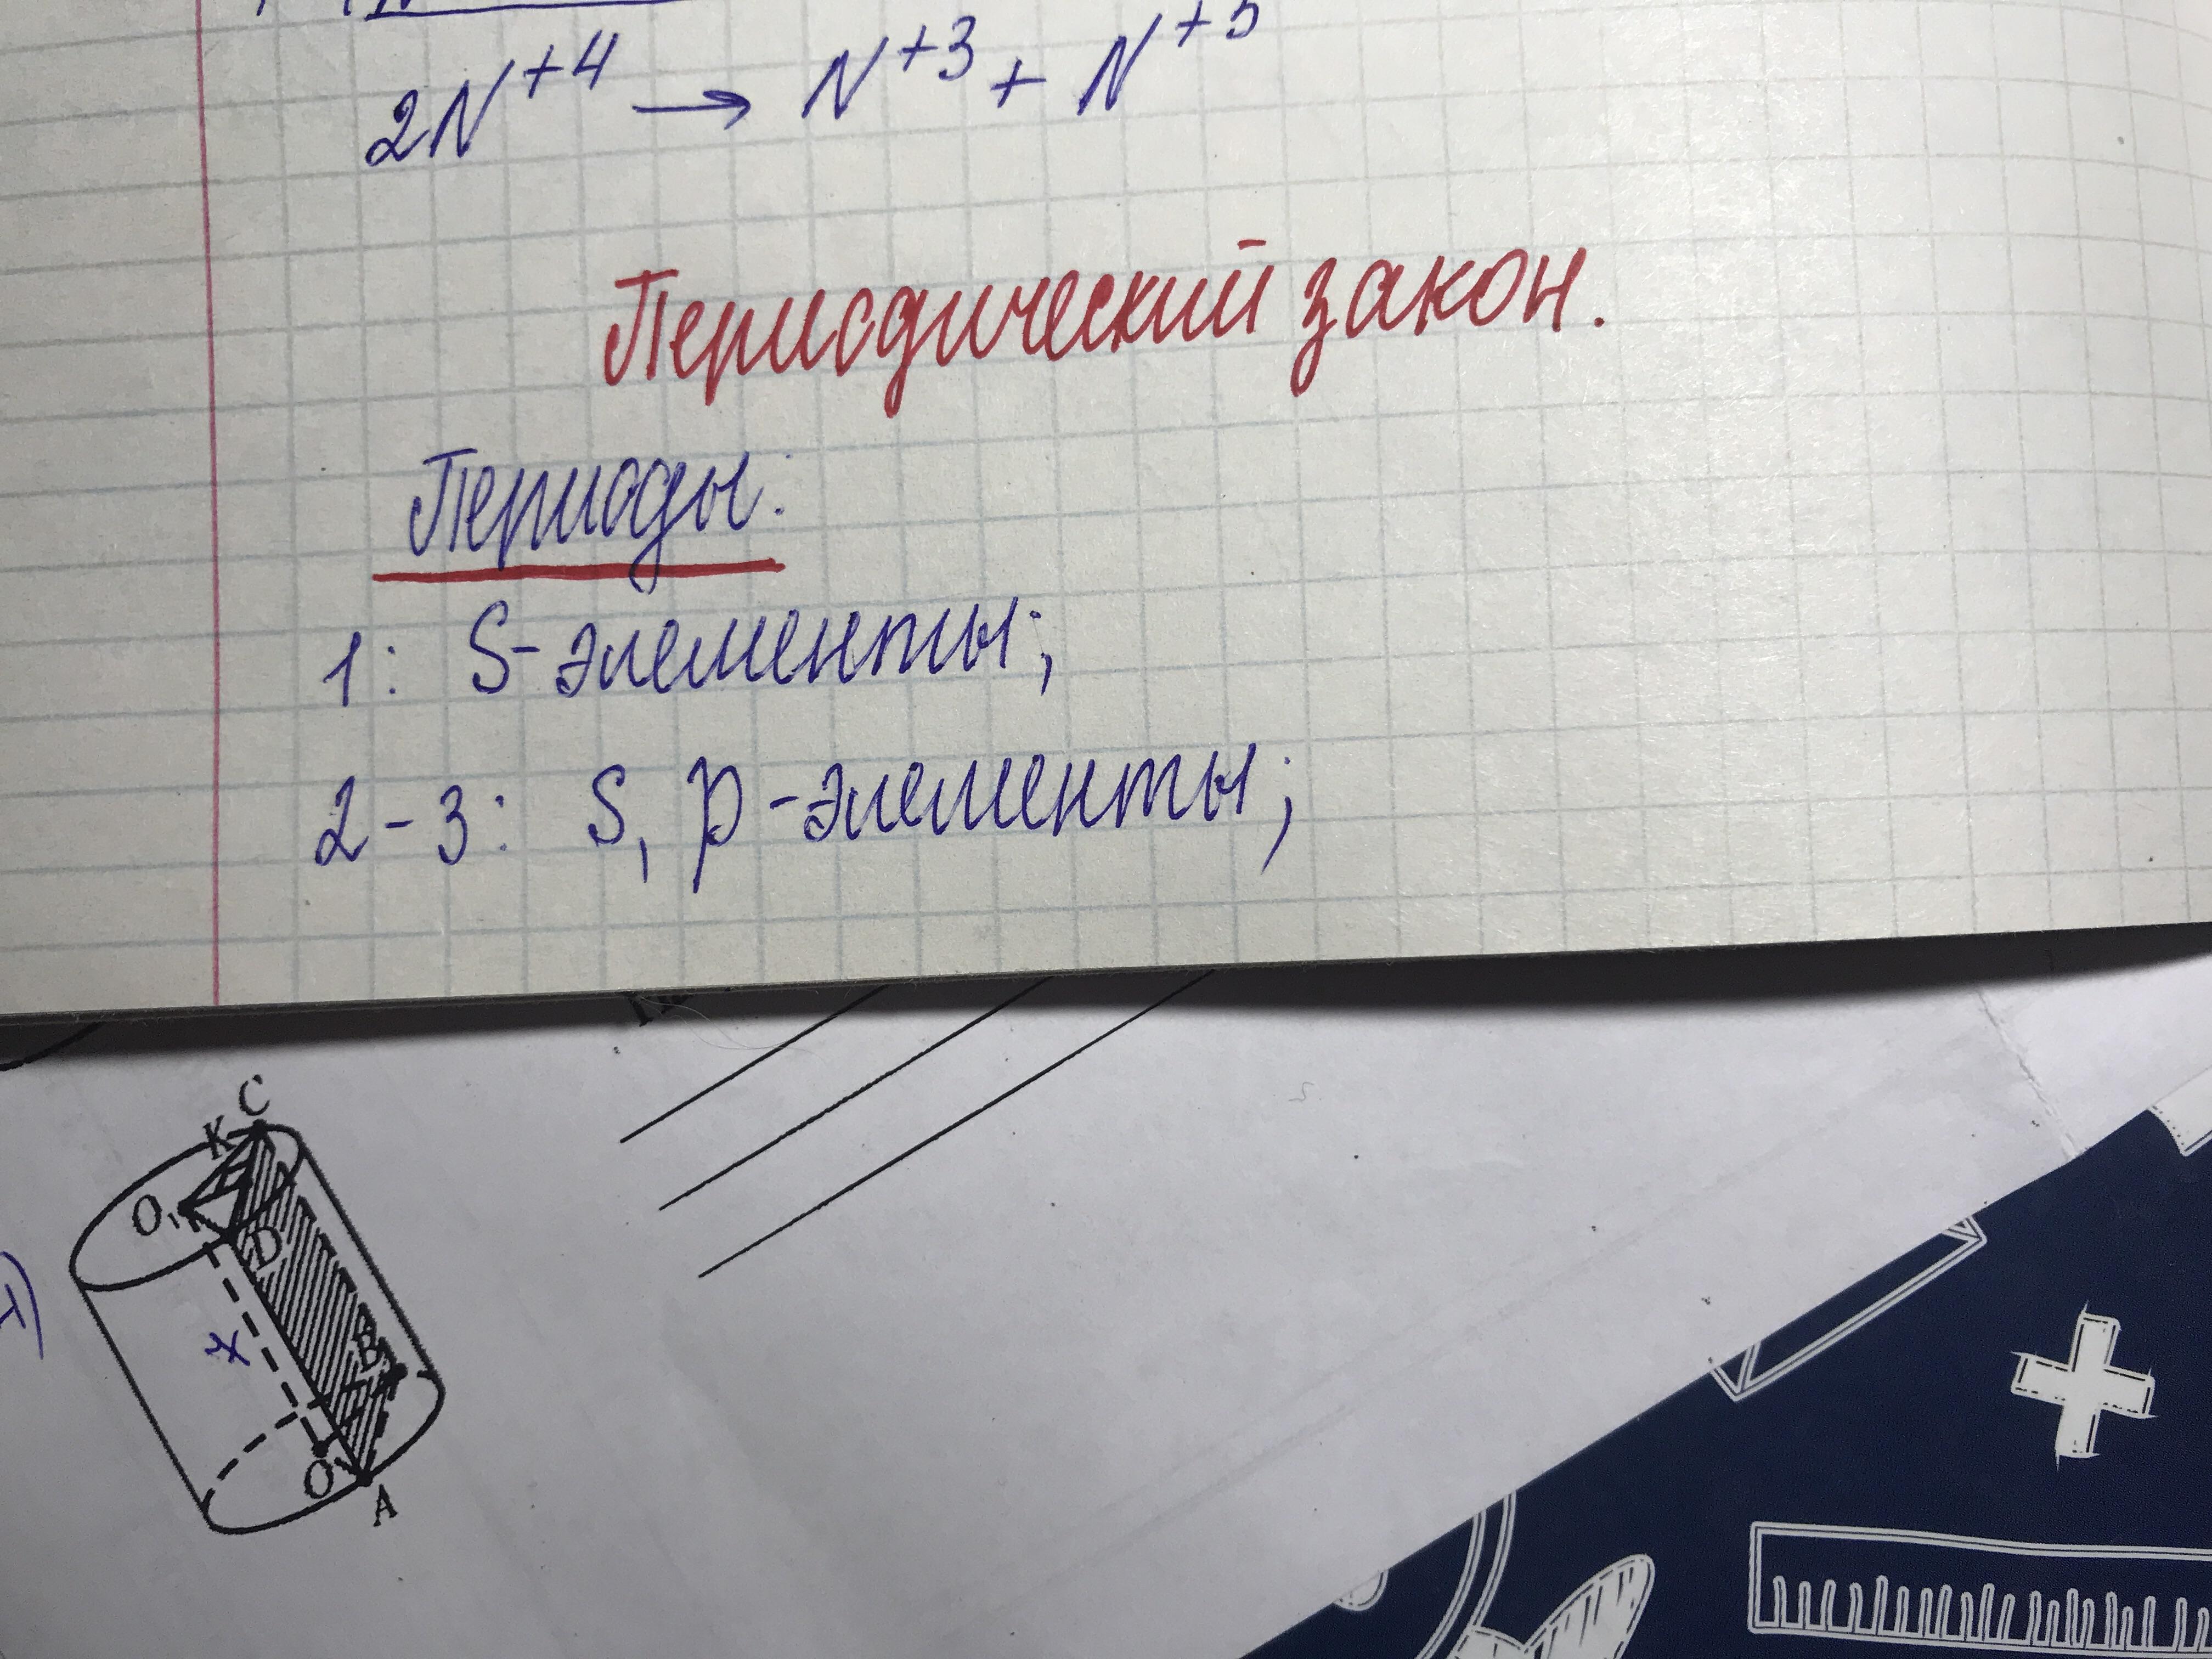 2N⁺⁴ → N⁺³ + N⁺⁵
Периодический закон.
Периоды:
1: S-элементы;
2-3: S, p-элементы;
C
K
O₁
D
x
B
O
A